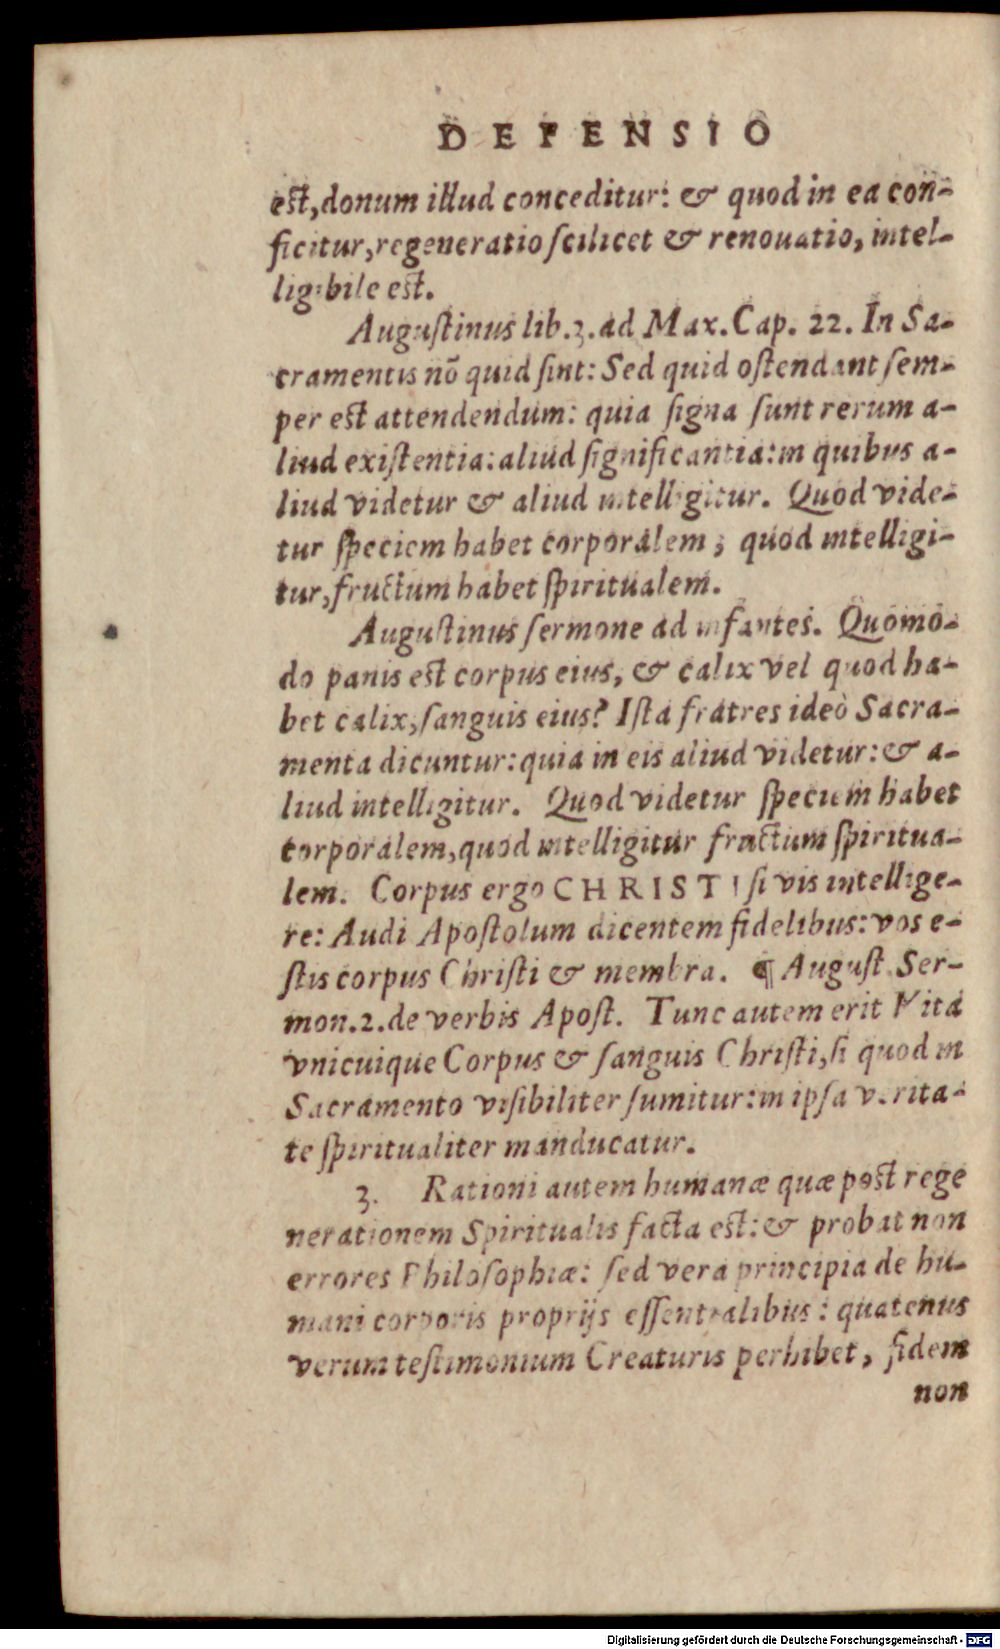 DEFENSIO
est, donum illud conceditur: & quod in ea con-
ficitur, regeneratio scilicet & renouatio, intel-
ligibile est.
Augustinus lib. 3. ad Max. Cap. 22. In Sa-
cramentis nō quid sint: Sed quid ostendant sem-
per est attendendum: quia signa sunt rerum a-
liud existentia: aliud significantia: in quibus a-
liud videtur & aliud intelligitur. Quod vide-
tur speciem habet corporalem; quod intelligi-
tur, fructum habet spiritualem.
Augustinus sermone ad infantes. Quomo-
do panis est corpus eius, & calix vel quod ha-
bet calix, sanguis eius? Ista fratres ideò Sacra-
menta dicuntur: quia in eis aliud videtur: & a-
liud intelligitur. Quod videtur speciem habet
corporalem, quod intelligitur fructum spiritua-
lem. Corpus ergo CHRISTI si vis intellige-
re: Audi Apostolum dicentem fidelibus: vos e-
stis corpus Christi & membra. ¶ August. Ser-
mon. 2. de verbis Apost. Tunc autem erit Vita
vnicuique Corpus & sanguis Christi, si quod in
Sacramento visibiliter sumitur: in ipsa verita-
te spiritualiter manducatur.
3. Rationi autem humanæ quæ post rege
nerationem Spiritualis facta est: & probat non
errores Philosophiæ: sed vera principia de hu-
mani corporis proprijs essentialibus: quatenus
verum testimonium Creaturis perhibet, fidem
non
Digitalisierung gefördert durch die Deutsche Forschungsgemeinschaft - DFG